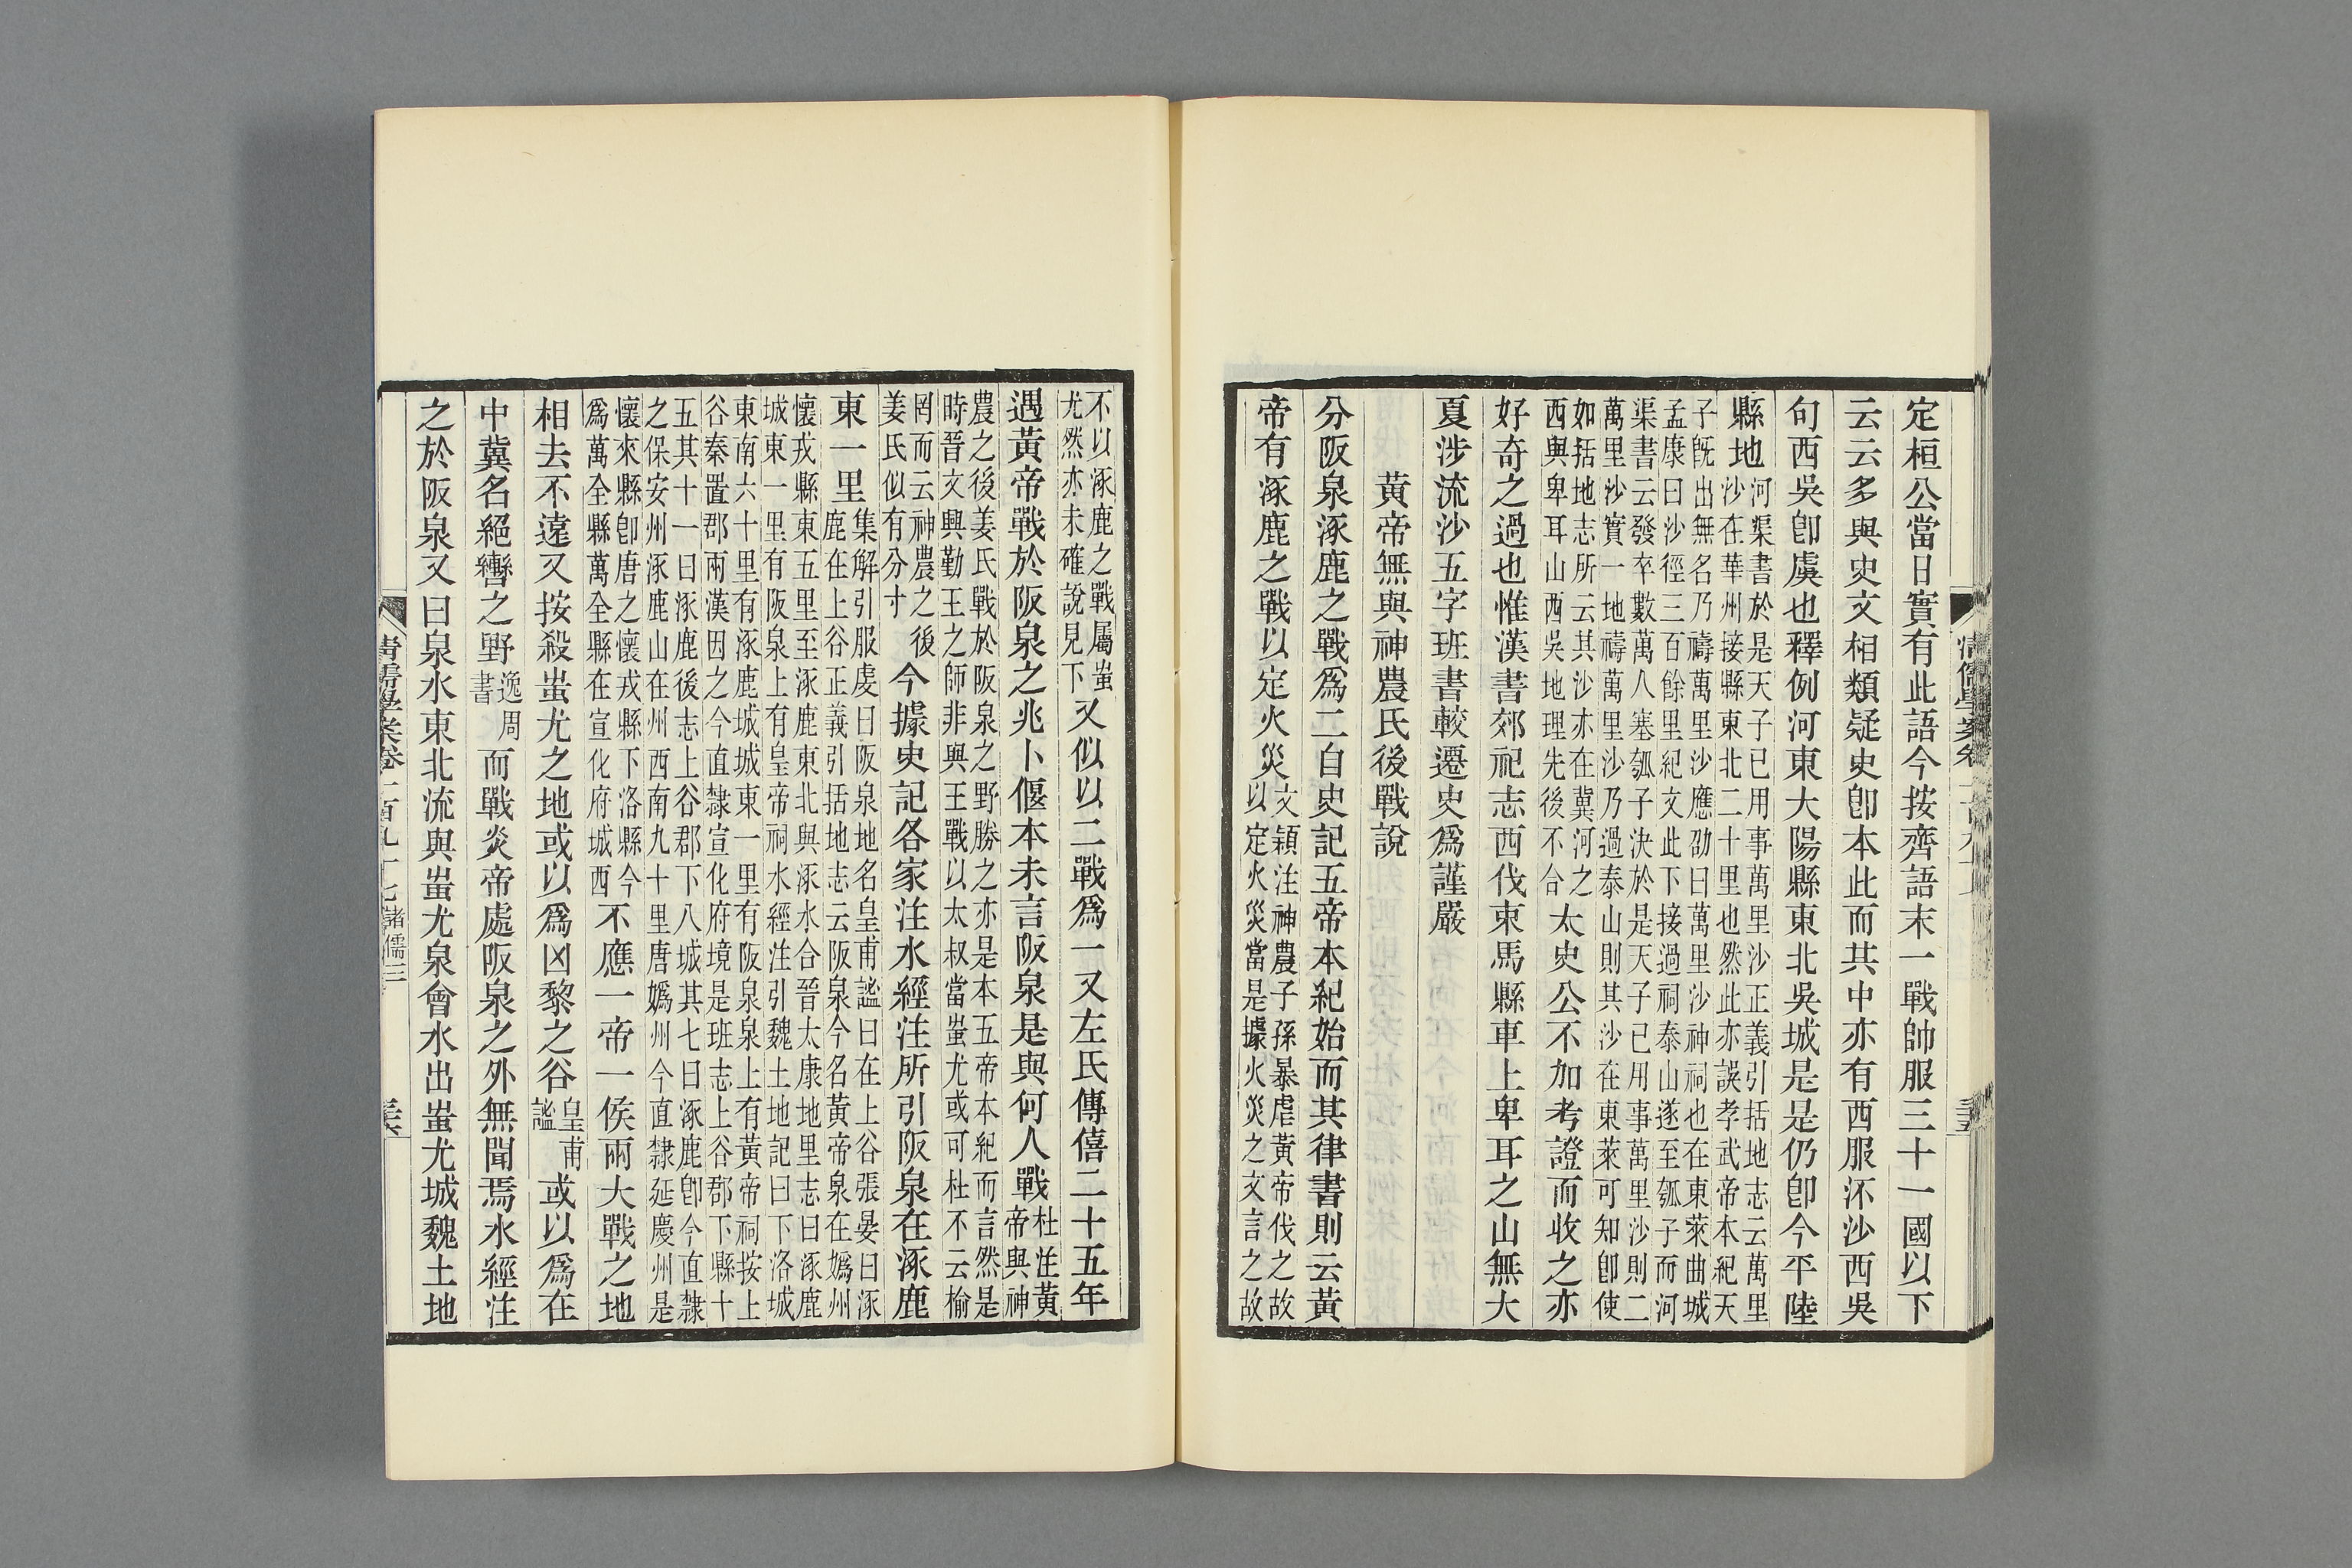 定桓公當日實有此語今按齊語末一戰帥服三十一國以下
云云多與史文相類疑史卽本此而其中亦有西服流沙西吳
句西吳卽虞也釋例河東大陽縣東北吳城是是仍卽今平陸
縣地
河渠書於是天子已用事萬里沙正義引括地志云萬里
沙在華州接縣東北二十里也然此亦誤孝武帝本紀天
子旣出無名乃禱萬里沙應劭曰萬里沙神祠也在東萊曲城
孟康曰沙徑三百餘里紀文此下接過祠泰山遂至瓠子而河
渠書云發卒數萬人塞瓠子決於是天子已用事萬里沙則二
萬里沙實一地禱萬里沙乃過泰山則其沙在東萊可知卽使
如括地志所云其沙亦在冀河之
西與卑耳山西吳地理先後不合
太史公不加考證而收之亦
好奇之過也惟漢書郊祀志西伐束馬縣車上卑耳之山無大
夏涉流沙五字班書較遷史爲謹嚴
黃帝無與神農氏後戰說
分阪泉涿鹿之戰爲二自史記五帝本紀始而其律書則云黃
帝有涿鹿之戰以定火災
文穎注神農子孫暴虐黃帝伐之故
以定火災當是據火災之文言之故
不以涿鹿之戰屬蚩
尤然亦未確說見下
又似以二戰爲一又左氏傳僖二十五年
遇黃帝戰於阪泉之兆卜偃本未言阪泉是與何人戰
杜注黃
帝與神
農之後姜氏戰於阪泉之野勝之亦是本五帝本紀而言然是
時晉文興勤王之師非與王戰以太叔當蚩尤或可杜不云榆
罔而云神農之後
姜氏似有分寸
今據史記各家注水經注所引阪泉在涿鹿
東一里
集解引服虔曰阪泉地名皇甫謐曰在上谷張晏曰涿
鹿在上谷正義引括地志云阪泉今名黃帝泉在嬀州
懷戎縣東五里至涿鹿東北與涿水合晉太康地里志曰涿鹿
城東一里有阪泉上有皇帝祠水經注引魏土地記曰下洛城
東南六十里有涿鹿城城東一里有阪泉泉上有黃帝祠按上
谷秦置郡兩漢因之今直隸宣化府境是班志上谷郡下縣十
五其十一曰涿鹿後志上谷郡下八城其七曰涿鹿卽今直隸
之保安州涿鹿山在州西南九十里唐嬀州今直隸延慶州是
懷來縣卽唐之懷戎縣下洛縣今
爲萬全縣萬全縣在宣化府城西
不應一帝一侯兩大戰之地
相去不遠又按殺蚩尤之地或以爲凶黎之谷
皇甫
謐
或以爲在
中冀名絕轡之野
逸周
書
而戰炎帝處阪泉之外無聞焉水經注
之於阪泉又曰泉水東北流與蚩尤泉會水出蚩尤城魏土地
清儒學案卷一百九十七
諸儒三
三六